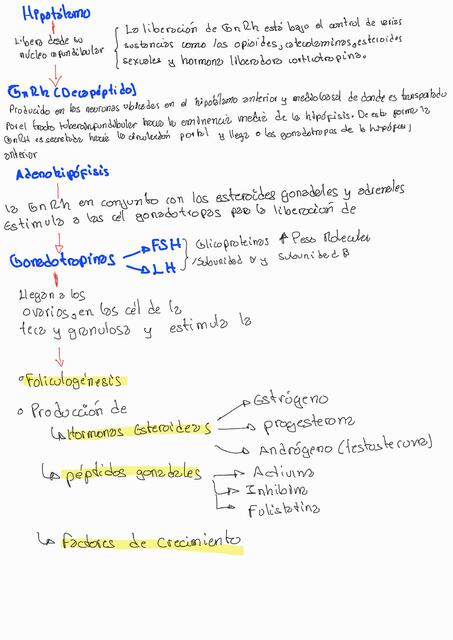 Hipotálamo
Libera desde su
nucleo infundibular
La liberación de GnRh está bajo el control de varias
sustancias como los opioides, catecolaminas, esteroides
sexuales y hormona liberadora corticotropina.
GnRh (Decapéptido)
Producido en las neuronas ubicadas en el hipotálamo anterior y mediobasal de donde es transportado
por el tracto tuberoinfundibular hacia la eminencia media de la hipófisis. De esta forma la
GnRH es secretada hacia la circulación portal y llega a las gonadotropas de la hipófisis
anterior
Adenohipófisis
La GnRh en conjunto con los esteroides gonadales y adrenales
Estimula a las cél gonadotropas para la liberación de
Gonadotropinas
FSH
LH
Glicoproteinas ↑ Peso Molecular
/Subunidad α y subunidad B
Llegan a los
ovarios, en las cél de la
teca y granulosa y estimula la
Foliculogénesis
Producción de
Hormonas Esteroideas
Estrógeno
progesterona
Andrógeno (testosterona)
péptidos gonadales
Activina
Inhibina
Folistatina
Factores de crecimiento